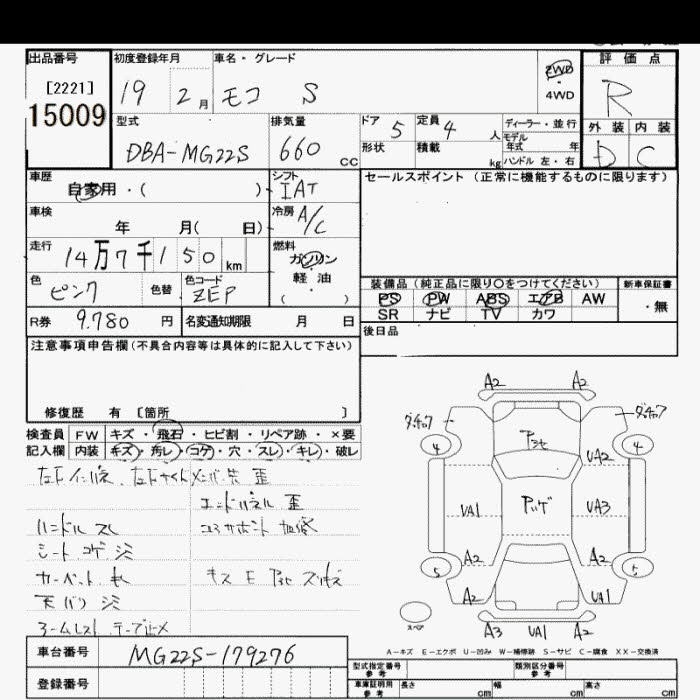 出品番号 初度登録年月 車名・グレード 2WD ・ 4WD 評価点
[2221] 19 2月 モコ S R
15009 外装 内装
型式 排気量 ドア 5 定員 4人 ディーラー・並行
DBA-MG22S 660cc 形状 積載 kg モデル年式 年 D C
ハンドル 左・右
車歴 シフト セールスポイント (正常に機能するものに限ります)
自家用・( ) IAT
車検 冷房 A/C
年 月( 日)
走行 燃料
14万7千150km ガソリン
軽油
( )
色 ピンク 色替 色コード ZEP 装備品 (純正品に限り○をつけてください) 新車保証書
PS PW ABS エアB AW ・無
SR ナビ TV カワ
R券 9.780円 名変通知期限 月 日 後日品
注意事項申告欄(不具合内容等は具体的に記入して下さい)
修復歴 有 [箇所 ]
検査員 FW キズ・飛石・ヒビ割・リペア跡・×要
記入欄 内装 キズ・汚レ・コゲ・穴・スレ・キレ・破レ
エンドパネル 歪
ハンドル スレ コアサポート 加修
シート コゲ
カーペット
A2 A2
4 4
UA2
UA1 UA3
A2 A2
5 5
A2 UA1
スペア
A3 UA1 A2
A-キズ E-エクボ U-凹み W-補修跡 S-サビ C-腐食 XX-交換済
車台番号 MG22S-179276
登録番号
型式指定番号 参考 類別区分番号 参考
車庫証明用 参考 長さ cm 幅 cm 高さ cm